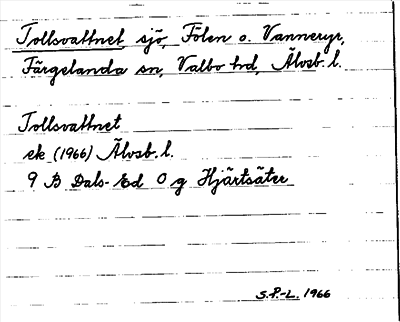 Tollsvattnet sjö, Fölen o. Vanneryr,
Färgelanda sn, Valbo hd, Älvsb. l.
Tollsvattnet
ek (1966) Älvsb. l.
9 B Dals-Ed 0 g Hjärtsäter
S.P.-L. 1966